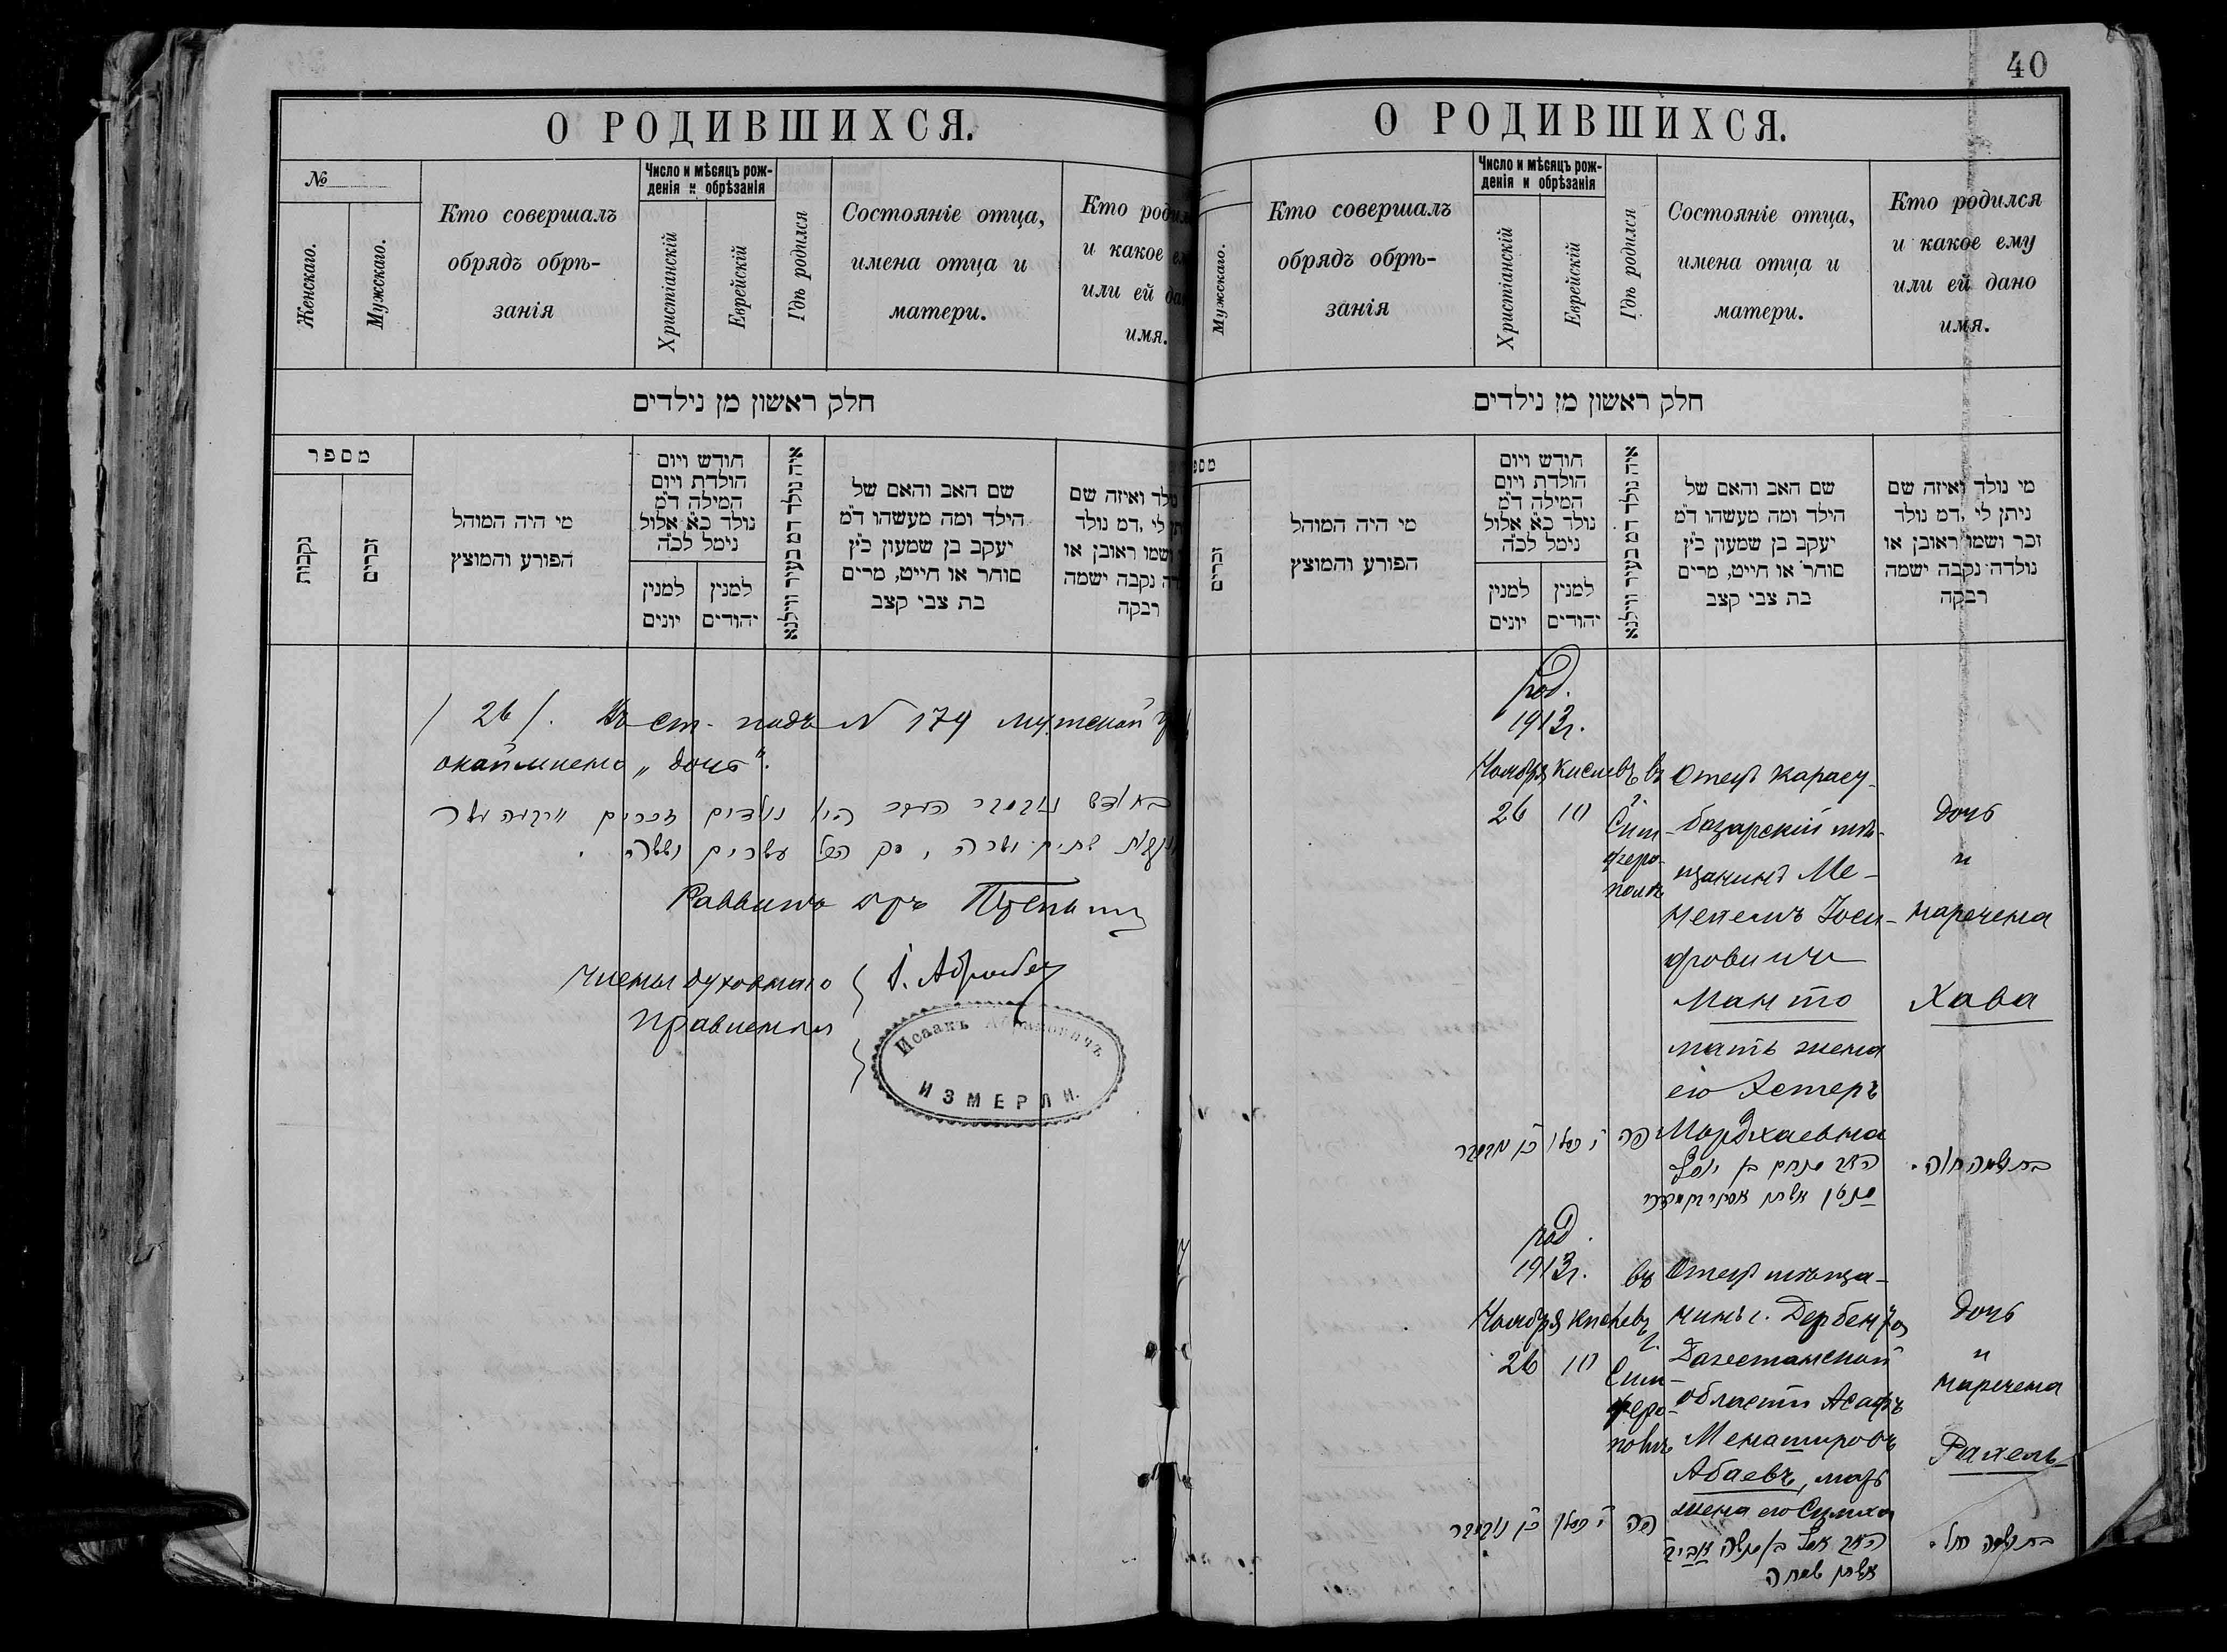 О РОДИВШИХСЯ.
№
Женскаго.
Мужскаго.
Кто совершалъ
обрядъ обрѣ-
занія
Число и мѣсяцъ рож-
денія и обрѣзанія
Христіанскій
Еврейскій
Гдѣ родился
Состояніе отца,
имена отца и
матери.
Кто роди
и какое е
или ей да
имя.
חלק ראשון מן נילדים
מספר
נקבות
זכרים
מי היה המוהל
הפורע והמוצץ
חודש ויום
הולדת ויום
המילה ד״מ
נולד כ״א אלול
נימל לכ״ה
למנין
יונים
למנין
יהודים
איה נולד דמ בעיר ווילנא
שם האב והאם של
הילד ומה מעשהו ד״מ
יעקב בן שמעון כ״ץ
סוחר או חייט, מרים
בת צבי קצב
ולד ואיזה שם
לי ,דמ נולד
ושמו ראובן או
נקבה ישמה
רבקה
/ 26 /. Въ ст. подъ № 174
„дочь".
Раввинъ
Члены духовнаго
Правленія
Исаакъ Абрамовичъ
ИЗМЕРЛИ.
40
О РОДИВШИХСЯ.
Мужскаго.
Кто совершалъ
обрядъ обрѣ-
занія
Число и мѣсяцъ рож-
денія и обрѣзанія
Христіанскій
Еврейскій
Гдѣ родился
Состояніе отца,
имена отца и
матери.
Кто родился
и какое ему
или ей дано
имя.
חלק ראשון מן נילדים
מספ
זכרים
מי היה המוהל
הפורע והמוצץ
חודש ויום
הולדת ויום
המילה ד״מ
נולד כ״א אלול
נימל לכ״ה
למנין
יונים
למנין
יהודים
איה נולד דמ בעיר ווילנא
שם האב והאם של
הילד ומה מעשהו ד״מ
יעקב בן שמעון כ״ץ
סוחר או חייט, מרים
בת צבי קצב
מי נולד ואיזה שם
ניתן לי ,דמ נולד
זכר ושמו ראובן או
נולדה נקבה ישמה
רבקה
род.
1913г.
Ноября
26
Кислевъ
10
въ
г.
Сим-
феро-
полѣ
Отецъ Карасу-
базарскій мѣ-
щанинъ Ме-
нехемъ Іоси-
фовичъ
Манто
мать жена
его Эстеръ
Мордхаевна
Дочь
и
наречена
Хава
род.
1913г.
Ноября
26
Кислевъ
10
въ
г.
Сим-
феро-
полѣ
Отецъ мѣща-
нинъ г. Дербента
Дагестанской
области Асафъ
Менашировъ
Абаевъ, мать
жена его Симха
Дочь
и
наречена
Рахель